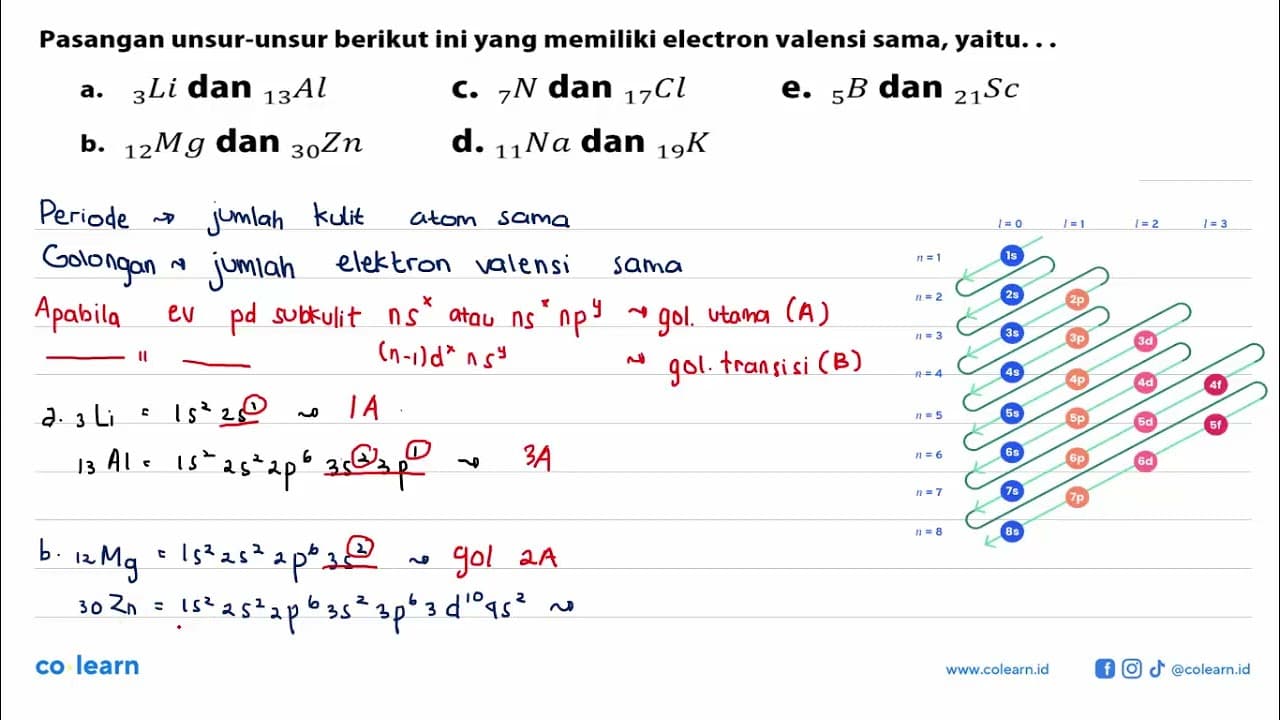 Pasangan unsur-unsur berikut ini yang memiliki electron valensi sama, yaitu...
a. ₃Li dan ₁₃Al c. ₇N dan ₁₇Cl e. ₅B dan ₂₁Sc
b. ₁₂Mg dan ₃₀Zn d. ₁₁Na dan ₁₉K
Periode ⇝ jumlah kulit atom sama
Golongan ⇝ jumlah elektron valensi sama
Apabila ev pd subkulit nsˣ atau nsˣ npʸ ⇝ gol. utama (A)
—— " —— (n-1)dˣ nsʸ ⇝ gol. transisi (B)
a. ₃Li = 1s² 2s¹ ⇝ 1A
₁₃Al = 1s² 2s² 2p⁶ 3s² 3p¹ ⇝ 3A
b. ₁₂Mg = 1s² 2s² 2p⁶ 3s² ⇝ gol 2A
₃₀Zn = 1s² 2s² 2p⁶ 3s² 3p⁶ 3d¹⁰ 4s² ⇝
l = 0 l = 1 l = 2 l = 3
n = 1 1s
n = 2 2s 2p
n = 3 3s 3p 3d
n = 4 4s 4p 4d 4f
n = 5 5s 5p 5d 5f
n = 6 6s 6p 6d
n = 7 7s 7p
n = 8 8s
co learn
www.colearn.id @colearn.id